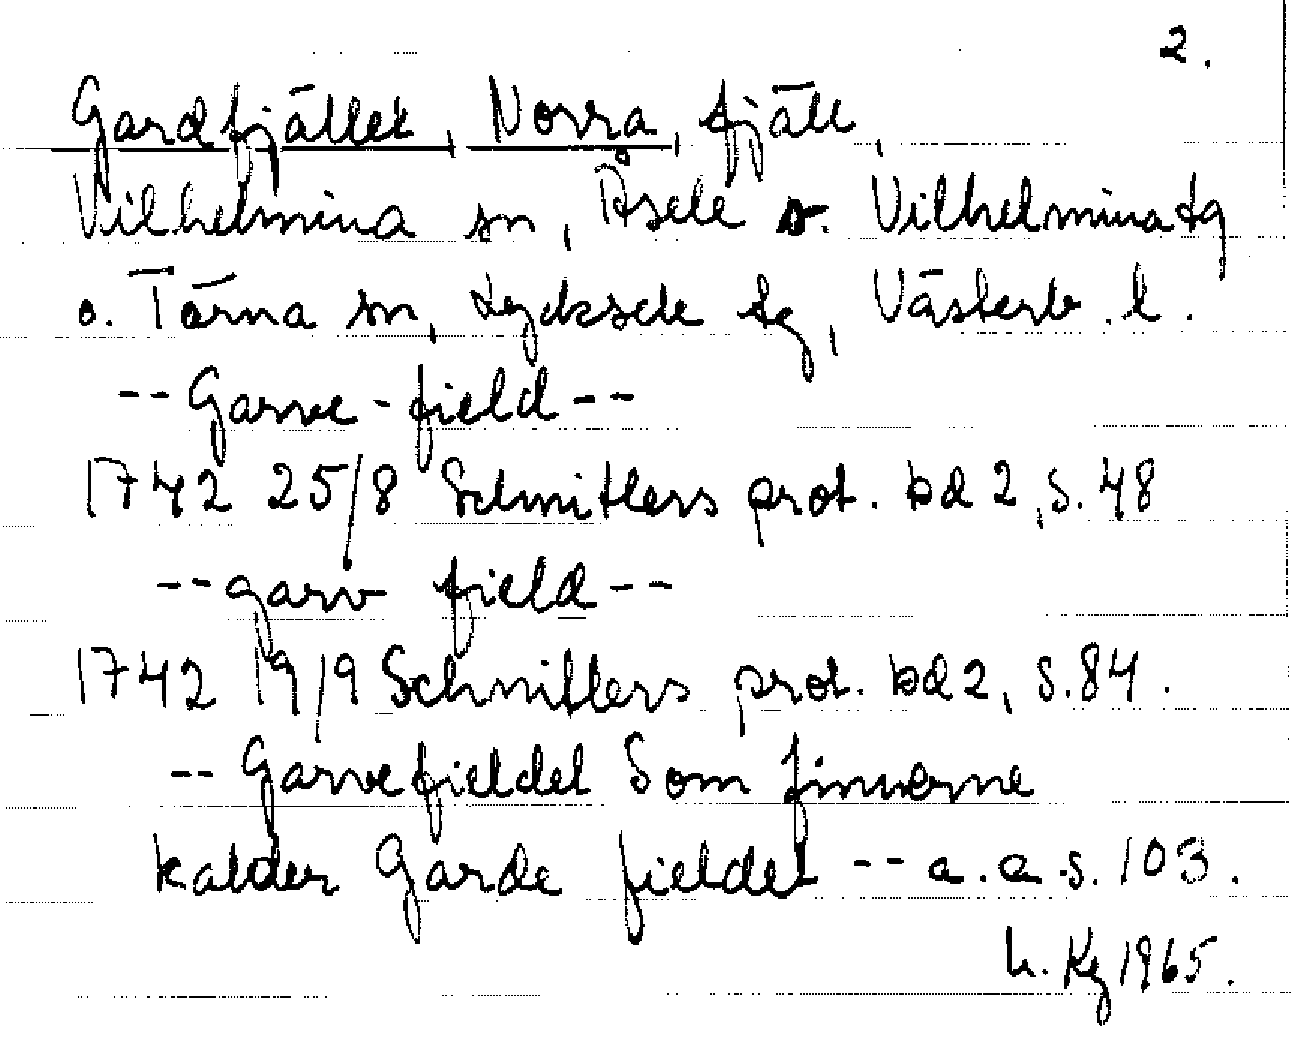 2.
Gardfjället, Norra, fjäll,
Vilhelmina sn, Åsele o. Vilhelmina tg
o. Tärna sn, Lycksele tg, Västerb. l.
-- Garve-field --
1742 25/8 Schnitlers prot. bd 2, s. 48
-- garv field --
1742 19/9 Schnitlers prot. bd 2, s. 84.
-- Garvefieldet Som finnerne
kalder Garde fieldet -- a.a.s. 103.
Kg 1965.